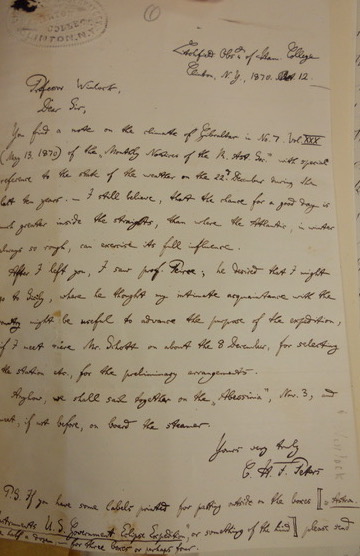 COLLEGE
CLINTON, N.Y.
1
Litchfield Obs.y of Ham. College
Clinton, N.Y., 1870. Oct 12.
Professor Winlock,
Dear Sir,
You find a note on the climate of Gibraltar in No. 7. Vol XXX
(May 13, 1870) of the "Monthly Notices of the R. Ast. Soc." with special
reference to the state of the weather on the 22d December during the
last ten years. – I still believe, that the chance for a good day is
much greater inside the straights, than where the Atlantic, in winter
always so rough, can exercise its full influence.
After I left you, I saw prof. Peirce; he desired that I might
go to Sicily, where he thought my intimate acquaintance with the
might be useful to advance the purpose of the expedition,
if I meet there Mr. Schott on about the 8 December, for selecting
the station etc., for the preliminary arrangements.
Anyhow, we shall sail together on the "Abessinia", Nov. 3, and
meet, if not before, on board the steamer.
Yours very truly
C. H. F. Peters
P.S. If you have some labels printed for putting outside on the boxes ["Astron.
Instruments U.S. Government Eclipse Expedition" or something of the kind] please send
half a dozen – for three boxes or perhaps four.